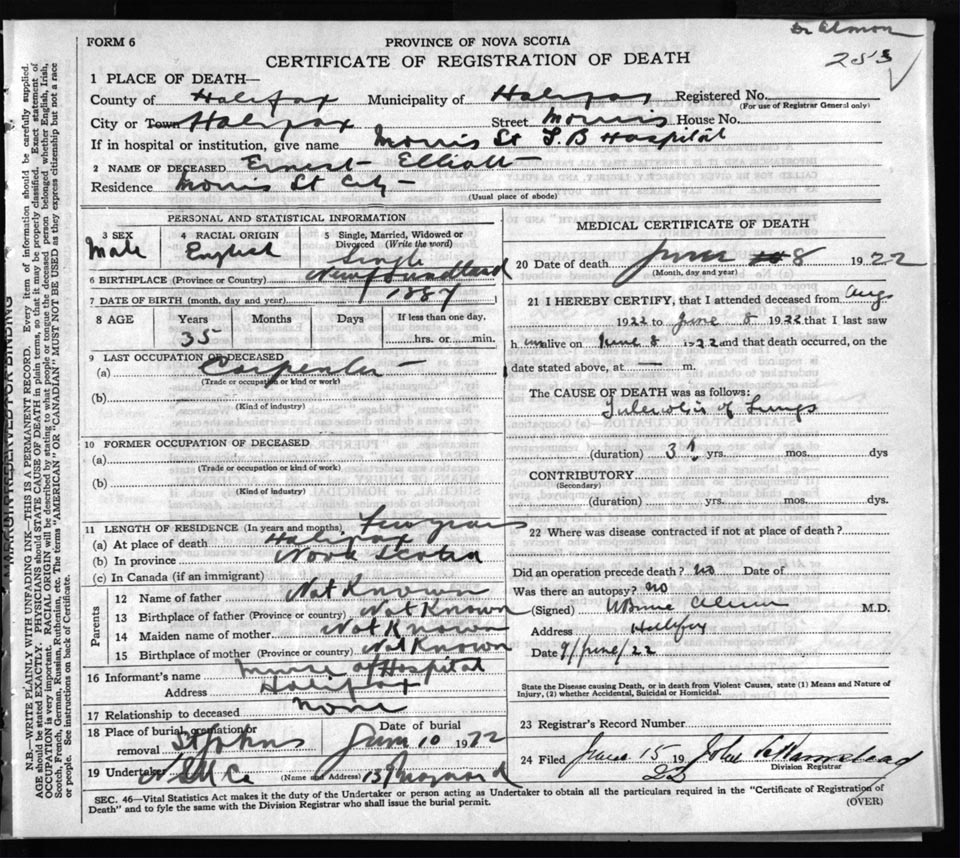 Dr Almon
253
FORM 6
PROVINCE OF NOVA SCOTIA
CERTIFICATE OF REGISTRATION OF DEATH
1 PLACE OF DEATH—
County of Halifax Municipality of Halifax Registered No.
(For use of Registrar General only)
City or Town Halifax Street Morris House No.
If in hospital or institution, give name Morris St T.B Hospital
2 NAME OF DECEASED Ernest Elliott
Residence Morris St City
(Usual place of abode)
PERSONAL AND STATISTICAL INFORMATION
3 SEX Male
4 RACIAL ORIGIN English
5 Single, Married, Widowed or Divorced (Write the word) Single
6 BIRTHPLACE (Province or Country) Newfoundland
7 DATE OF BIRTH (month, day and year) 1887
8 AGE Years 35 Months Days If less than one day, hrs. or min.
9 LAST OCCUPATION OF DECEASED
(a) Carpenter
(Trade or occupation or kind or work)
(b)
(Kind of industry)
10 FORMER OCCUPATION OF DECEASED
(a)
(Trade or occupation or kind of work)
(b)
(Kind of industry)
11 LENGTH OF RESIDENCE (In years and months) Few years
(a) At place of death Halifax
(b) In province Nova Scotia
(c) In Canada (if an immigrant)
Parents
12 Name of father Not Known
13 Birthplace of father (Province or country) Not Known
14 Maiden name of mother Not Known
15 Birthplace of mother (Province or country) Not Known
16 Informant's name Nurse of Hospital
Address Halifax
17 Relationship to deceased none
18 Place of burial, cremation or removal St Johns Date of burial June 10 1922
19 Undertaker (Name and Address)
MEDICAL CERTIFICATE OF DEATH
20 Date of death June 8 1922
(Month, day and year)
21 I HEREBY CERTIFY, that I attended deceased from Aug
1922 to June 8 1922 that I last saw
h im alive on June 8 1922 and that death occurred, on the
date stated above, at m.
The CAUSE OF DEATH was as follows:
Tuberculosis of Lungs
(duration) 3 ? yrs. mos. dys
CONTRIBUTORY
(Secondary)
(duration) yrs. mos. dys.
22 Where was disease contracted if not at place of death?
Did an operation precede death? no Date of
Was there an autopsy? no
(Signed) Almon M.D.
Address Halifax
Date 9/June/22
State the Disease causing Death, or in death from Violent Causes, state (1) Means and Nature of
Injury, (2) whether Accidental, Suicidal or Homicidal.
23 Registrar's Record Number
24 Filed June 15 1922 John
Division Registrar
SEC. 46—Vital Statistics Act makes it the duty of the Undertaker or person acting as Undertaker to obtain all the particulars required in the "Certificate of Registration of
Death" and to fyle the same with the Division Registrar who shall issue the burial permit.
(OVER)
MARGIN RESERVED FOR BINDING
N.B.—WRITE PLAINLY WITH UNFADING INK—THIS IS A PERMANENT RECORD. Every item of information should be carefully supplied.
AGE should be stated EXACTLY. PHYSICIANS should STATE CAUSE OF DEATH in plain terms, so that it may be properly classified. Exact statement of
OCCUPATION is very important. RACIAL ORIGIN will be described by stating to what people or tongue the deceased person belonged, whether English, Irish,
Scotch, French, German, Russian, Ruthenian, etc. The terms "AMERICAN" OR "CANADIAN" MUST NOT BE USED as they express citizenship but not a race
or people. See instructions on back of Certificate.